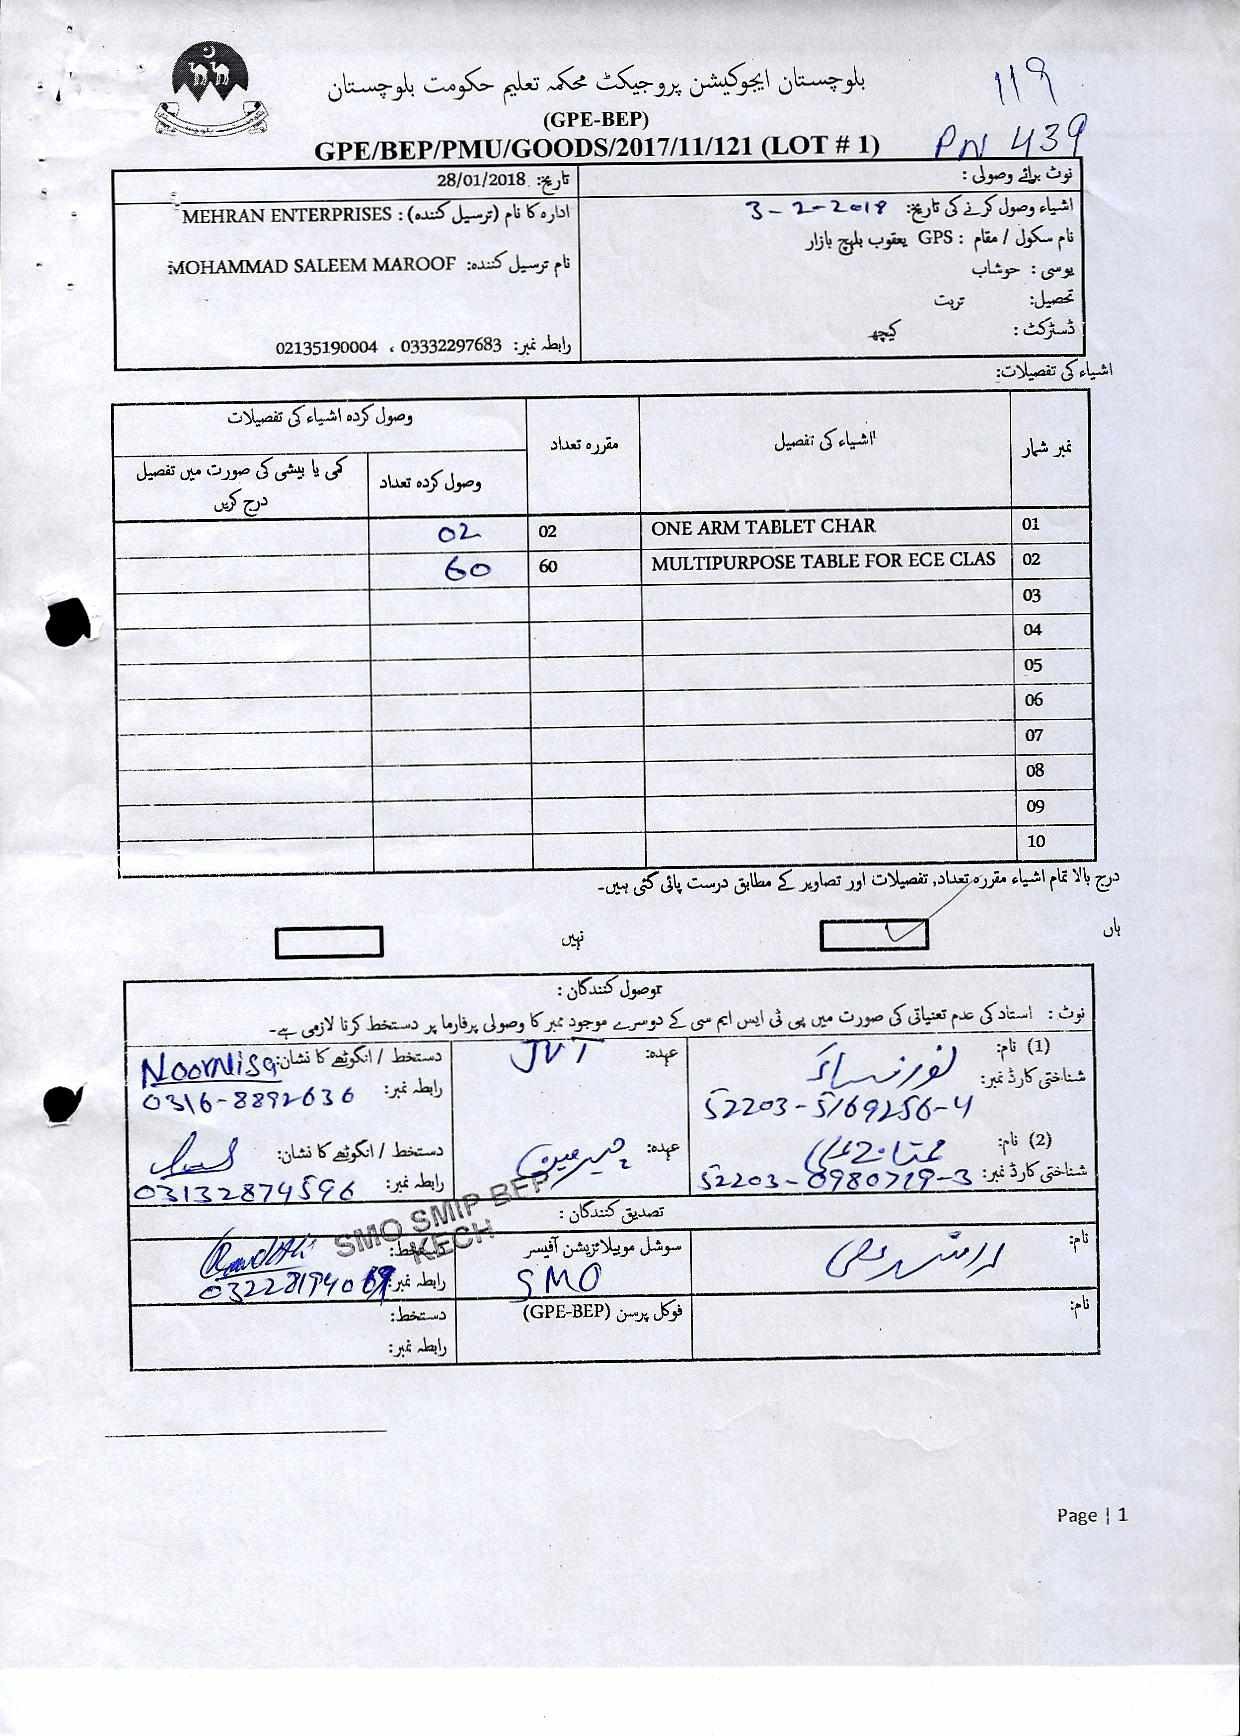 بلوچستان ایجوکیشن پروجیکٹ محکمہ تعلیم حکومت بلوچستان
119
(GPE-BEP)
GPE/BEP/PMU/GOODS/2017/11/121 (LOT # 1)
PN 439
نوٹ برائے وصولی :
تاریخ: 28/01/2018
اشیاء وصول کرنے کی تاریخ: 3-2-2018
ادارہ کا نام (ترسیل کنندہ) : MEHRAN ENTERPRISES
نام سکول / مقام : GPS یعقوب بلہج بازار
نام ترسیل کنندہ: MOHAMMAD SALEEM MAROOF
یوسی : حوشاب
تحصیل: تربت
ڈسٹرکٹ : کیچھ
رابطہ نمبر: 03332297683 ، 02135190004
اشیاء کی تفصیلات:
نمبر شمار
اشیاء کی تفصیل
مقررہ تعداد
وصول کردہ اشیاء کی تفصیلات
وصول کردہ تعداد
کمی یا بیشی کی صورت میں تفصیل درج کریں
01 ONE ARM TABLET CHAR 02 02
02 MULTIPURPOSE TABLE FOR ECE CLAS 60 60
03
04
05
06
07
08
09
10
درج بالا تمام اشیاء مقررہ تعداد, تفصیلات اور تصاویر کے مطابق درست پائی گئی ہیں۔
ہاں
نہیں
وصول کنندگان :
نوٹ : استاد کی عدم تعنیاتی کی صورت میں پی ٹی ایس ایم سی کے دوسرے موجود ممبر کا وصولی پرفارما پر دستخط کرنا لازمی ہے۔
(1) نام: نورنساء
عہدہ: JVT
دستخط / انگوٹھے کا نشان: NoorNisa
شناختی کارڈ نمبر: 52203-5169256-4
رابطہ نمبر: 0316-8892636
(2) نام:
عہدہ: چیرمین
دستخط / انگوٹھے کا نشان:
شناختی کارڈ نمبر: 52203-0980729-3
رابطہ نمبر: 03132874596
تصدیق کنندگان :
SMO SMIP BEP
KECH
نام:
سوشل موبیلائزیشن آفیسر
SMO
دستخط:
رابطہ نمبر:
نام:
فوکل پرسن (GPE-BEP)
دستخط:
رابطہ نمبر:
Page | 1